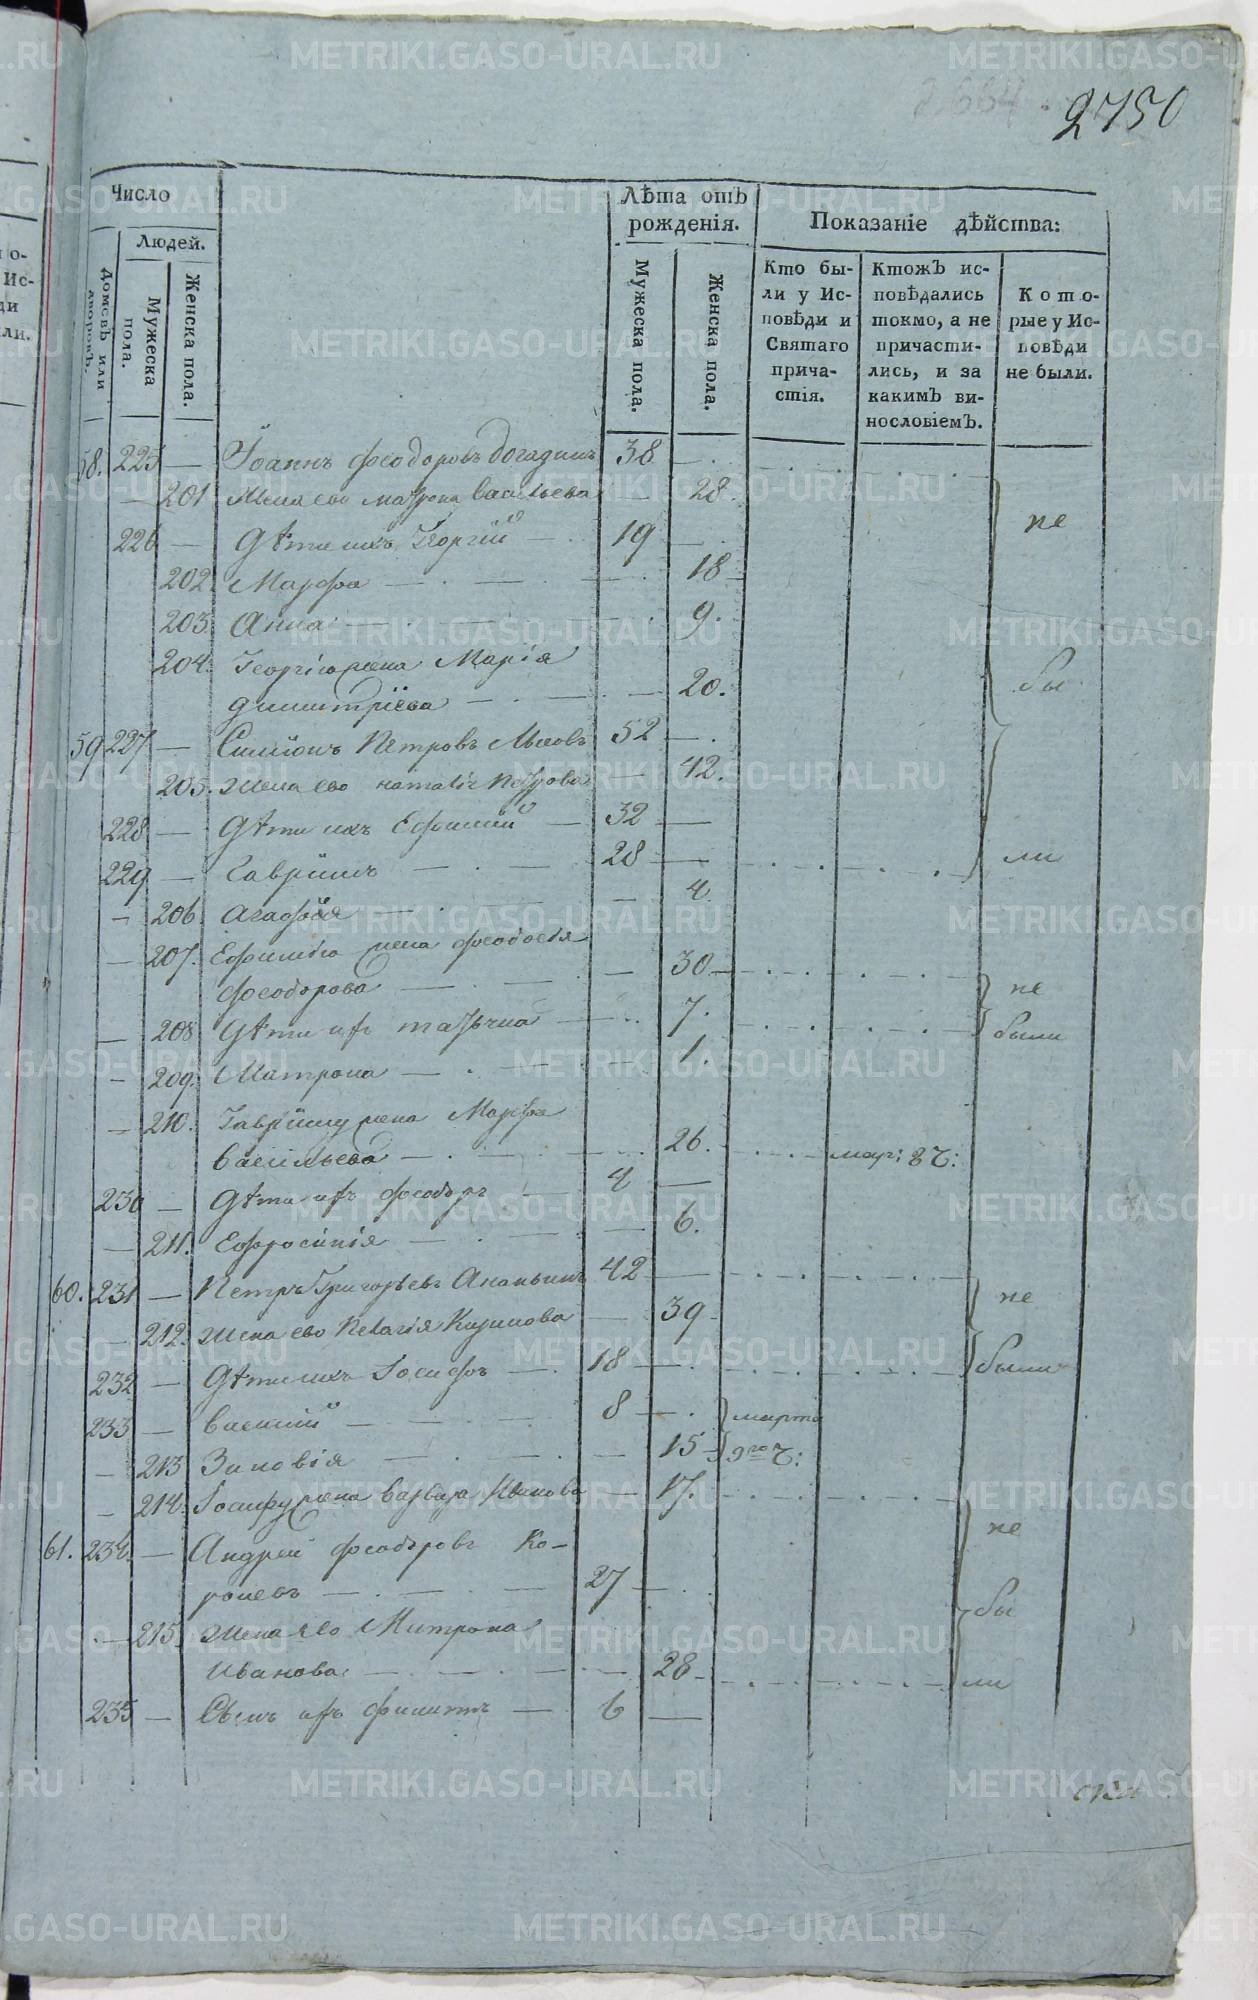 2750
Число
Людей.
Домовъ или дворовъ.
Мужеска пола.
Женска пола.
Лѣта отъ рожденія.
Мужеска пола.
Женска пола.
Показаніе дѣйства:
Кто бы-
ли у Ис-
повѣди и
Святаго
прича-
стія.
Ктожъ ис-
повѣдались
токмо, а не
причасти-
лись, и за
какимъ ви-
нословіемъ.
Кото-
рые у Ис-
повѣди
не были.
58. 225 — Іоаннъ Феодоровъ Догадинъ 38
201 Жена ево Матрона Васильева 28
226 — Дѣти ихъ Георгій 19 не
202. Марфа 18
203. Анна 9.
204. Георгію жена Марія
Димитріева 20. бы
59 227 — Симіонъ Петровъ 52
205. Жена ево Наталія Петрова 42.
228 — Дѣти ихъ Ефимій 32
229 — Гавріилъ 28 ли
206. Агафія 4
207. Ефимію жена Феодосія
Феодорова 30 не
208 Дѣти ихъ Татьяна 7. были
209. Матрона 1.
210. Гавріилу жена Марфа
Васильева 26. мар: 8 ч:
230 — Дѣти ихъ Феодоръ 4
211. Ефросинія 6.
60. 231 — Петръ Григорьевъ Ананьинъ 42 не
212. Жена ево Пелагія 39
232 — Дѣти ихъ Іосифъ 18 были
233 — Василій 8 марта
213 Зиновія 15 9го ч:
214. Іосифу жена Варвара Иванова 17.
61. 234. — Андрей Феодоровъ Ко- не
ролевъ 27
215. Жена ево Митрона бы
Иванова 28 ли
235 — Сынъ ихъ Филиппъ 6
METRIKI.GASO-URAL.RU